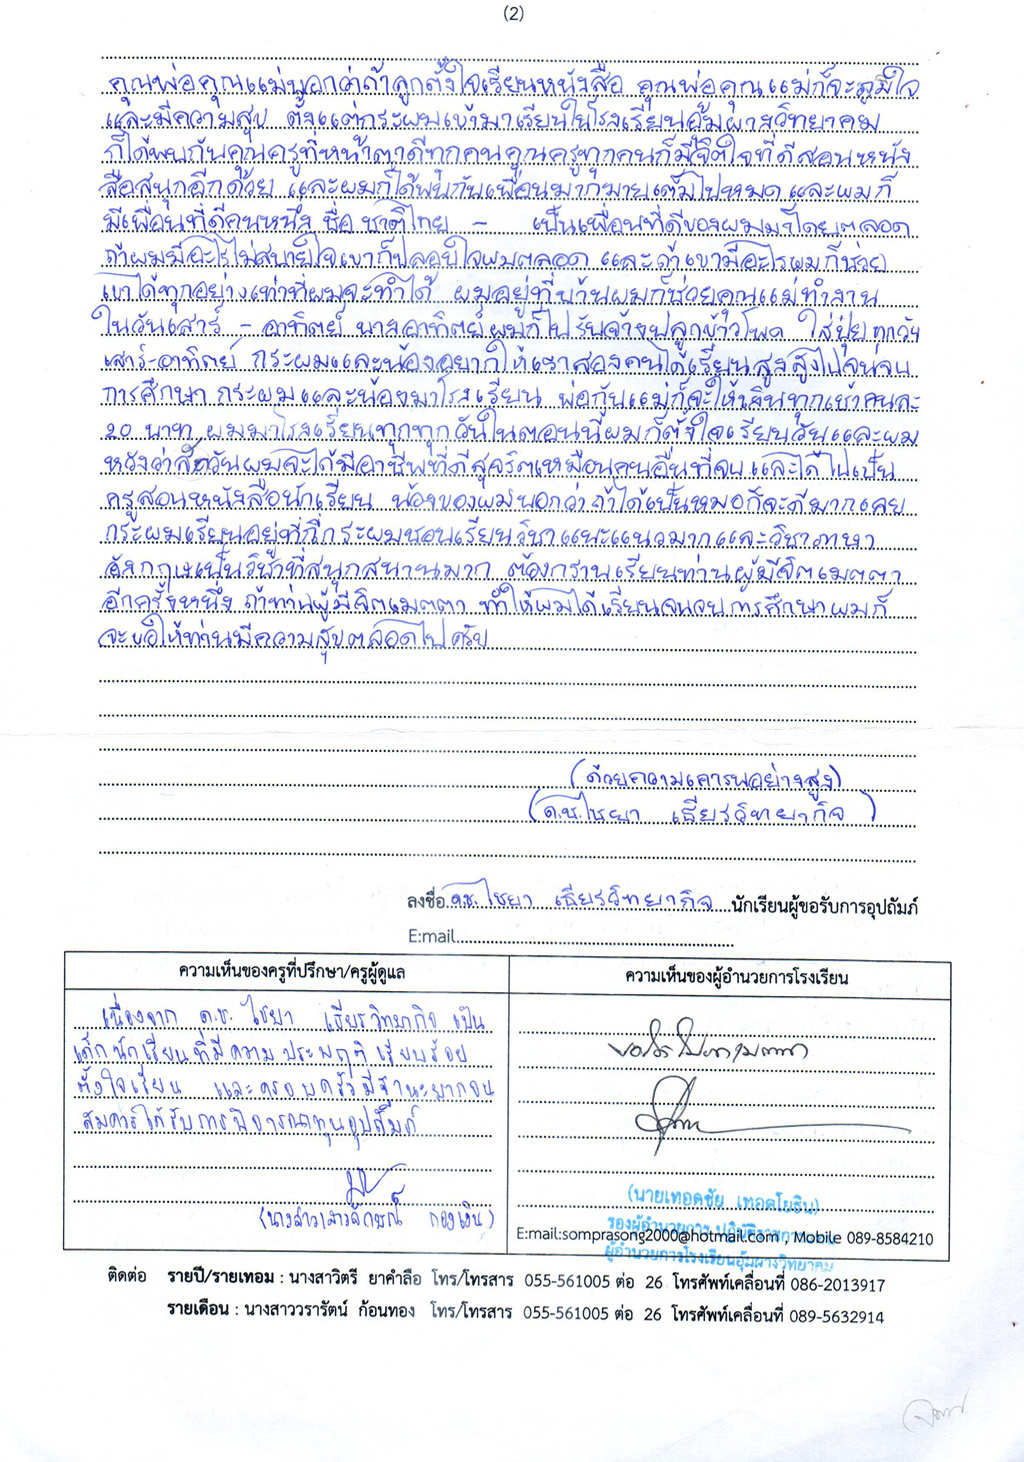 (2)
คุณพ่อคุณแม่บอกว่าถ้าลูกตั้งใจเรียนหนังสือ คุณพ่อคุณแม่ก็จะภูมิใจ
และมีความสุข ตั้งแต่กระผมเข้ามาเรียนในโรงเรียนอุ้มผางวิทยาคม
ก็ได้พบกับคุณครูที่หน้าตาดีทุกคนคุณครูทุกคนก็มีจิตใจที่ดีสอนหนัง
สือสนุกอีกด้วย และผมก็ได้พบกับเพื่อนมากมายเต็มไปหมด และผมก็
มีเพื่อนที่ดีคนหนึ่ง ชื่อ ชาติไทย - เป็นเพื่อนที่ดีของผมมาโดยตลอด
ถ้าผมมีอะไรไม่สบายใจเขาก็ปลอบใจผมตลอด และถ้าเขามีอะไรผมก็ช่วย
เขาได้ทุกอย่างเท่าที่ผมจะทำได้ ผมอยู่ที่บ้านผมก็ช่วยคุณแม่ทำงาน
ในวันเสาร์ - อาทิตย์ บางอาทิตย์ผมก็ไปรับจ้างปลูกข้าวโพด ใส่ปุ๋ย ทุกวัน
เสาร์-อาทิตย์ กระผมและน้องอยากให้เราสองคนได้เรียนสูงสูงไปจนจบ
การศึกษา กระผมและน้องมาโรงเรียน พ่อกับแม่ก็จะให้เงินทุกเช้าคนละ
20 บาท ผมมาโรงเรียนทุกทุกวันในตอนนี้ผมก็ตั้งใจเรียนวันและผม
หวังว่าสักวันผมจะได้มีอาชีพที่ดีสุจริตเหมือนคนอื่นที่จบและได้ไปเป็น
ครูสอนหนังสือนักเรียน น้องของผมบอกว่าถ้าได้เป็นหมอก็จะดีมากเลย
กระผมเรียนอยู่ที่นี่กระผมชอบเรียนวิชาแนะแนวมากและวิชาภาษา
อังกฤษเป็นวิชาที่สนุกสนานมาก ต้องกราบเรียนท่านผู้มีจิตเมตตา
อีกครั้งหนึ่ง ถ้าท่านผู้มีจิตเมตตา ทำให้ผมได้เรียนจนจบการศึกษาผมก็
จะขอให้ท่านมีความสุขตลอดไปครับ
(ด้วยความเคารพอย่างสูง)
(ด.ช.ไชยา เธียรวิทยากิจ)
ลงชื่อ ด.ช. ไชยา เธียรวิทยากิจ นักเรียนผู้ขอรับการอุปถัมภ์
E:mail
ความเห็นของครูที่ปรึกษา/ครูผู้ดูแล
เนื่องจาก ด.ช. ไชยา เธียรวิทยากิจ เป็น
เด็กนักเรียนที่มีความประพฤติเรียบร้อย
ตั้งใจเรียน และครอบครัวมีฐานะยากจน
สมควรได้รับการพิจารณาทุนอุปถัมภ์
ความเห็นของผู้อำนวยการโรงเรียน
(นายเทอดชัย เทอดโยธิน)
รองผู้อำนวยการ ปฏิบัติราชการแทน
E:mail:somprasong2000@hotmail.com , Mobile 089-8584210
ผู้อำนวยการโรงเรียนอุ้มผางวิทยาคม
ติดต่อ รายปี/รายเทอม : นางสาวิตรี ยาคำลือ โทร/โทรสาร 055-561005 ต่อ 26 โทรศัพท์เคลื่อนที่ 086-2013917
รายเดือน : นางสาววรารัตน์ ก้อนทอง โทร/โทรสาร 055-561005 ต่อ 26 โทรศัพท์เคลื่อนที่ 089-5632914